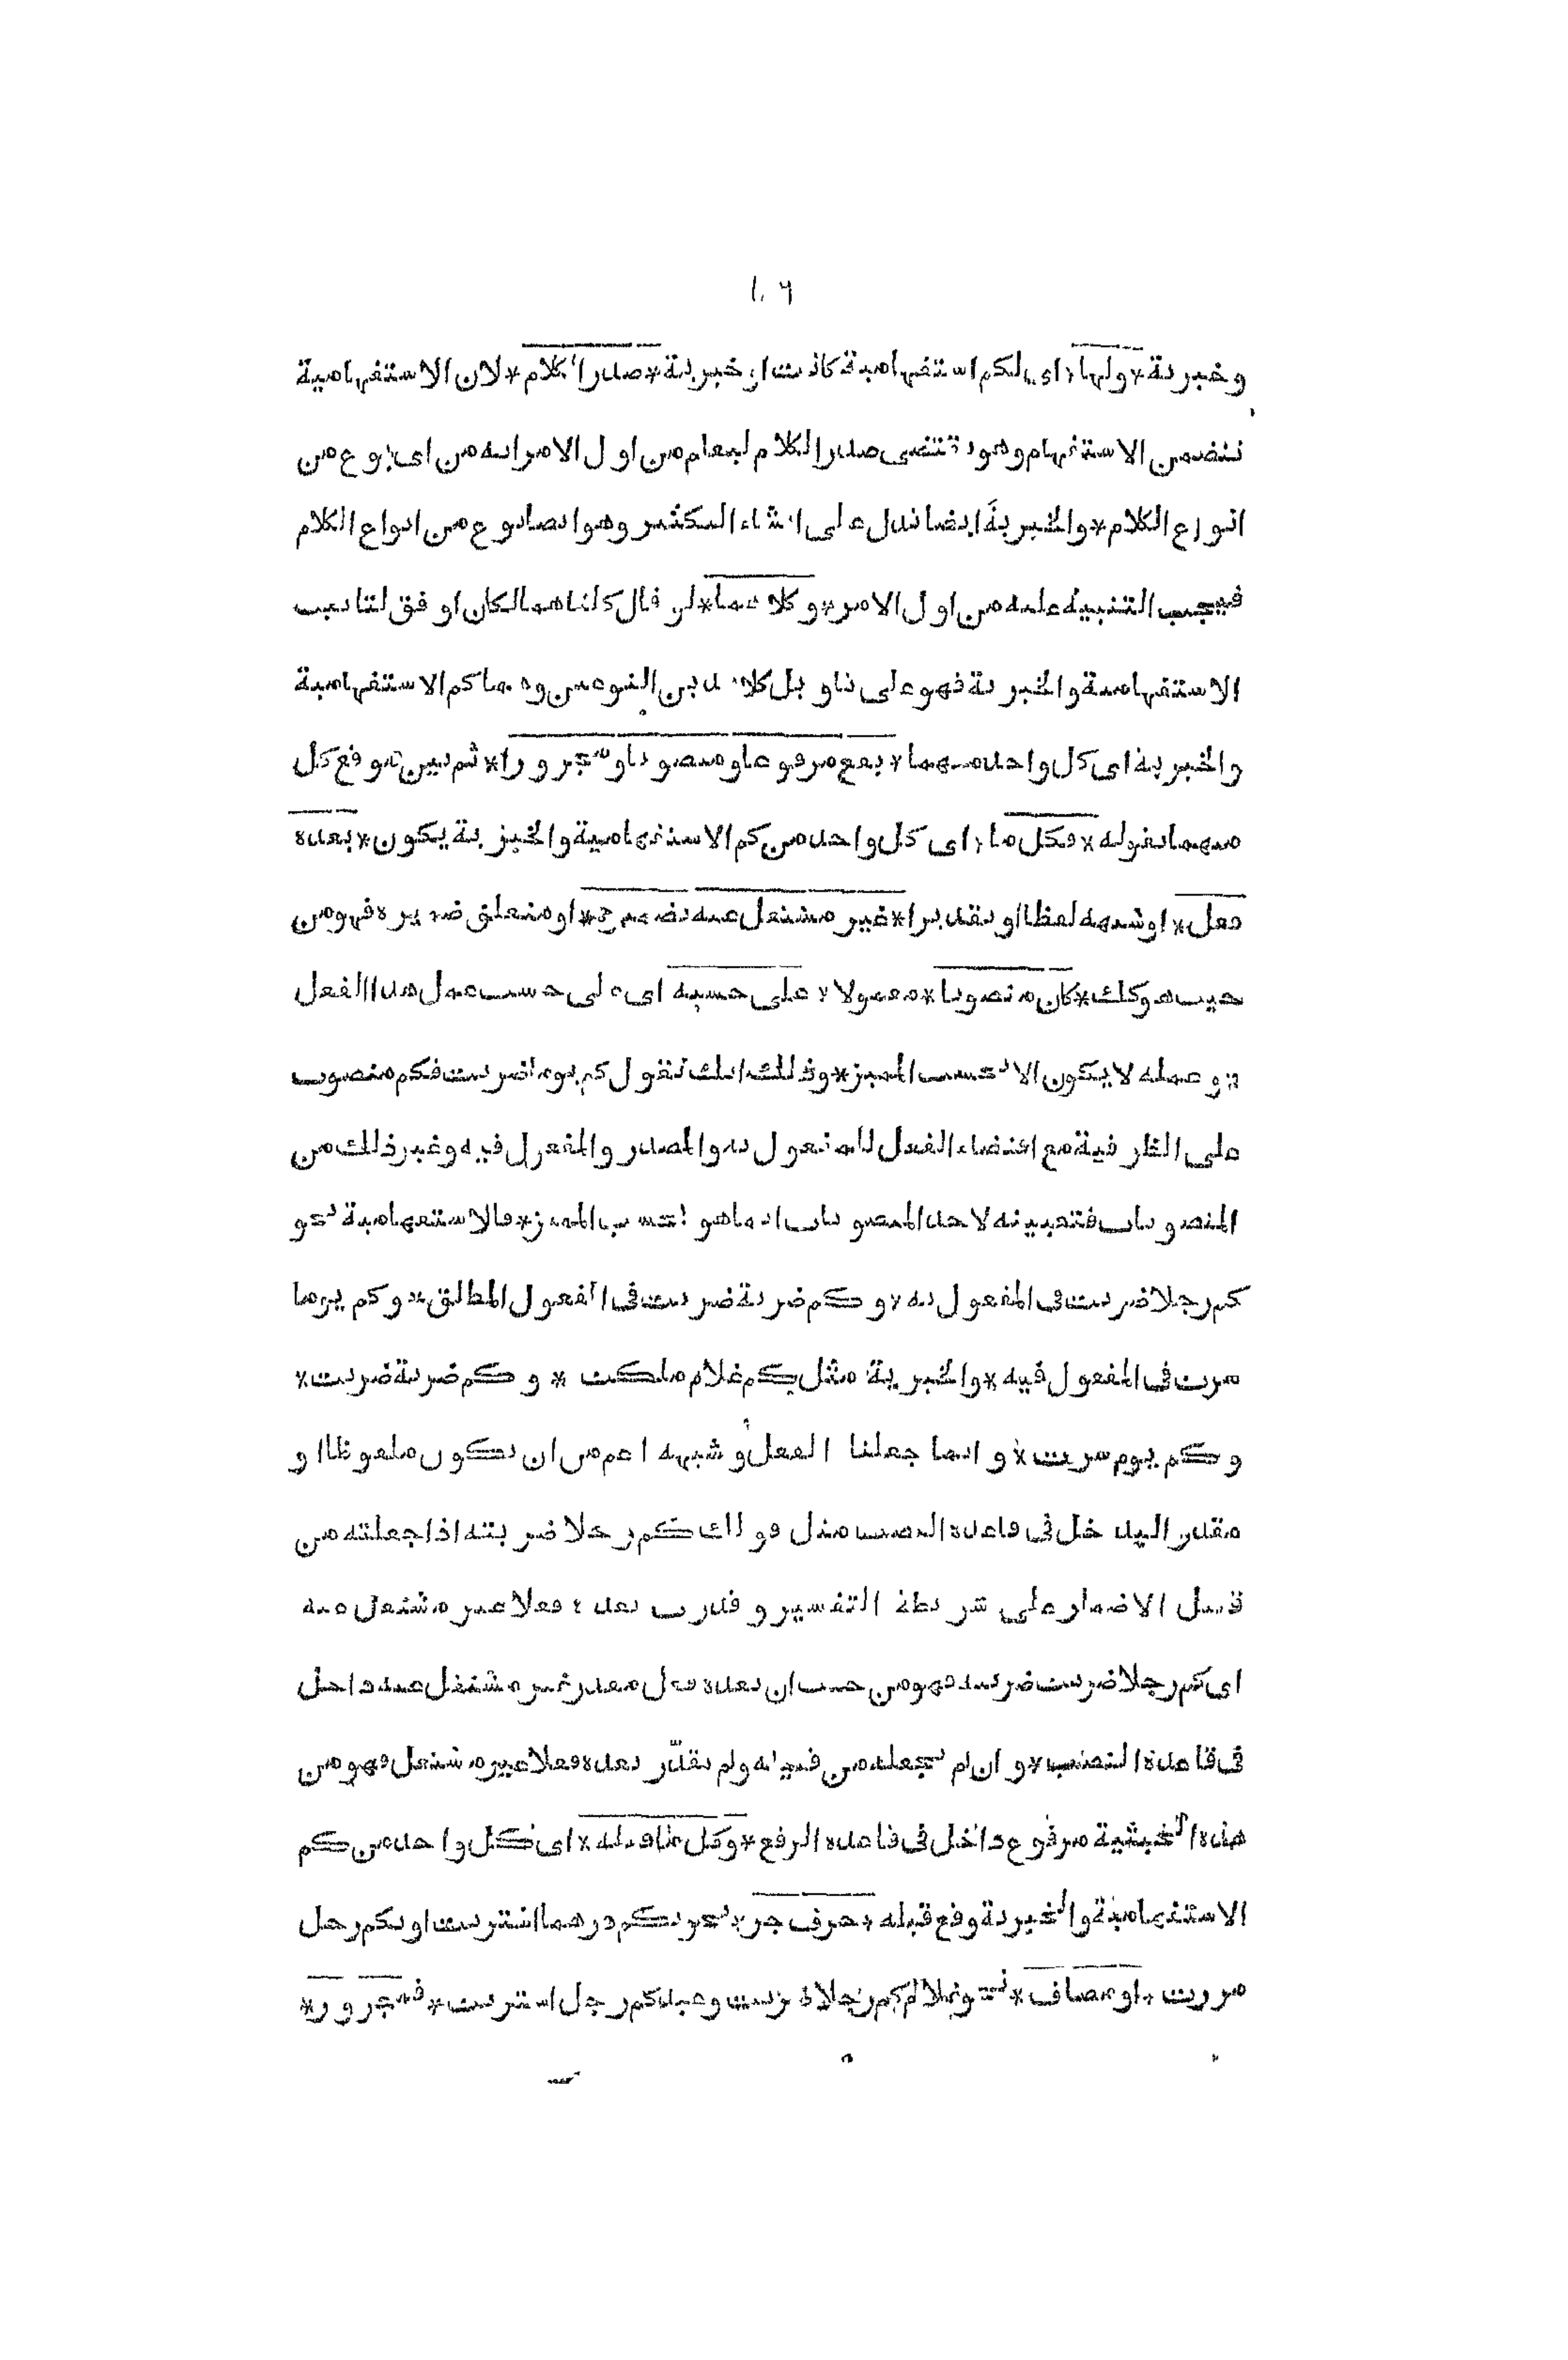 ١٠٦
وخبرية * ولها * اى لكم استفهامية كانت او خبرية * صدر الكلام * لان الاستفهامية
تتضمن الاستفهام وهو يقتضى صدر الكلام ليعلم من اول الامر انه من اى نوع من
انواع الكلام * والخبرية ايضا تدل على انشاء التكثير وهو ايضا نوع من انواع الكلام
فيجب التنبيه عليه من اول الامر * وكلاهما * لو قال كلتاهما لكان اوفق لتانيث
الاستفهامية والخبرية فهو على تاويل كلا هذين النوعين وهما كم الاستفهامية
والخبرية اى كل واحد منهما * يقع مرفوعا ومنصوبا ومجرورا * ثم بين موقع كل
منهما بقوله * فكل ما * اى كل واحد من كم الاستفهامية والخبرية يكون * بعده
فعل * او شبهه لفظا او تقديرا * غير مشتغل عنه بضميره * او متعلق ضميره فهو من
حيث هو كذلك * كان منصوبا * معمولا * على حسبه اى على حسب عمل هذا الفعل
وعمله لا يكون الا بحسب المميز * وذلك انك تقول كم يوما ضربت فكم منصوب
على الظرفية مع اقتضاء الفعل للمفعول به والمصدر والمفعول فيه وغير ذلك من
المنصوبات فتعيينه لاحد المنصوبات انما هو بحسب المميز * فالاستفهامية نحو
كم رجلا ضربت فى المفعول به * وكم ضربة ضربت فى المفعول المطلق * وكم يوما
سرت فى المفعول فيه * والخبرية مثل كم غلام ملكت * وكم ضربة ضربت *
وكم يوم سرت * وانما جعلنا الفعل وشبهه اعم من ان يكون ملفوظا او
مقدرا ليدخل فى قاعدة النصب مثل قولك كم رجلا ضربته اذا جعلته من
قبيل الاضمار على شريطة التفسير وقدرت بعده فعلا غير مشتغل عنه
اى كم رجلا ضربت ضربته فهو من حيث ان بعده فعل مقدر غير مشتغل عنه داخل
فى قاعدة النصب * وان لم تجعله من قبيله ولم تقدّر بعده فعلا غير مشتغل فهو من
هذه الحيثية مرفوع داخل فى قاعدة الرفع * وكل ما قبله * اى كل واحد من كم
الاستفهامية والخبرية وقع قبله * حرف جر * نحو بكم درهما اشتريت او بكم رجل
مررت * او مضاف * نحو غلام كم رجلا ضربت وعبد كم رجل اشتريت * فمجرور *